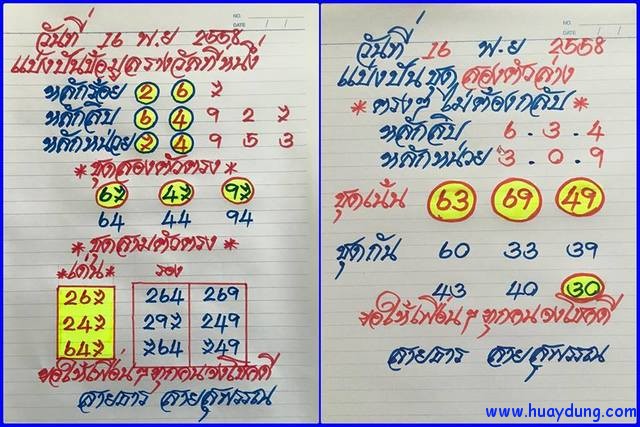 NO.
DATE / /
วันที่ 16 พ.ย 2558
แบ่งปันข้อมูลรางวัลที่หนึ่ง
หลักร้อย 2 6 7
หลักสิบ 6 4 9 2 7
หลักหน่วย 7 4 9 5 3
* ชุดสองตัวตรง *
67 47 97
64 44 94
* ชุดสามตัวตรง *
*เด่น* รอง
267 264 269
247 297 249
647 764 749
ขอให้เพื่อนๆทุกคนจงโชคดี
สายธาร สายสุพรรณ
NO.
DATE / /
วันที่ 16 พ.ย 2558
แบ่งปันชุดสองตัวล่าง
* ตรงๆ ไม่ต้องกลับ *
หลักสิบ 6.3.4
หลักหน่วย 3.0.9
ชุดเน้น 63 69 49
ชุดกัน 60 33 39
43 40 30
ขอให้เพื่อนๆทุกคนจงโชคดี
สายธาร สายสุพรรณ
www.huaydung.com